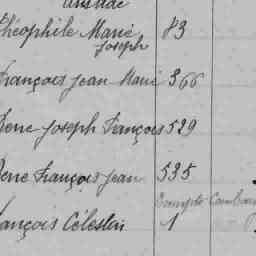 Théophile Marie 83
Joseph
François Jean Marie 366
René Joseph François 529
René François Jean 535
François Célestin 1